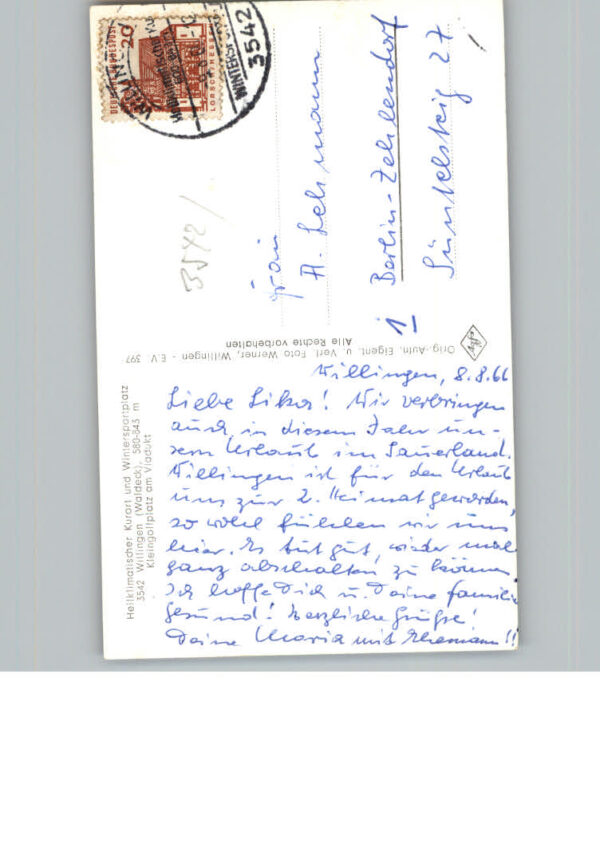 Heilklimatischer Kurort und Wintersportplatz
3542 Willingen (Waldeck), 580-843 m
Kleingolfplatz am Viadukt
Willingen, 8.8.66
Liebe
Wir verbringen
auch in diesem Jahr un-
sern Urlaub im Sauerland.
Willingen ist für den Urlaub
uns zur 2. Heimat geworden,
so wohl fühlen wir uns
hier. Es tut gut, wieder mal
ganz abschalten zu können
Ich hoffe Dich u. Deine Familie
gesund! Herzliche Grüße!
Deine Maria mit Ehemann!!
Orig.-Aufn. Eigent. u. Verl. Foto Werner, Willingen - E.V. 397
Alle Rechte vorbehalten
Agfa
DEUTSCHE BUNDESPOST
20
LORSCH HESSEN
3542
3542
Frau
A. Lehmann
1 Berlin-Zehlendorf
Süntelsteig 27